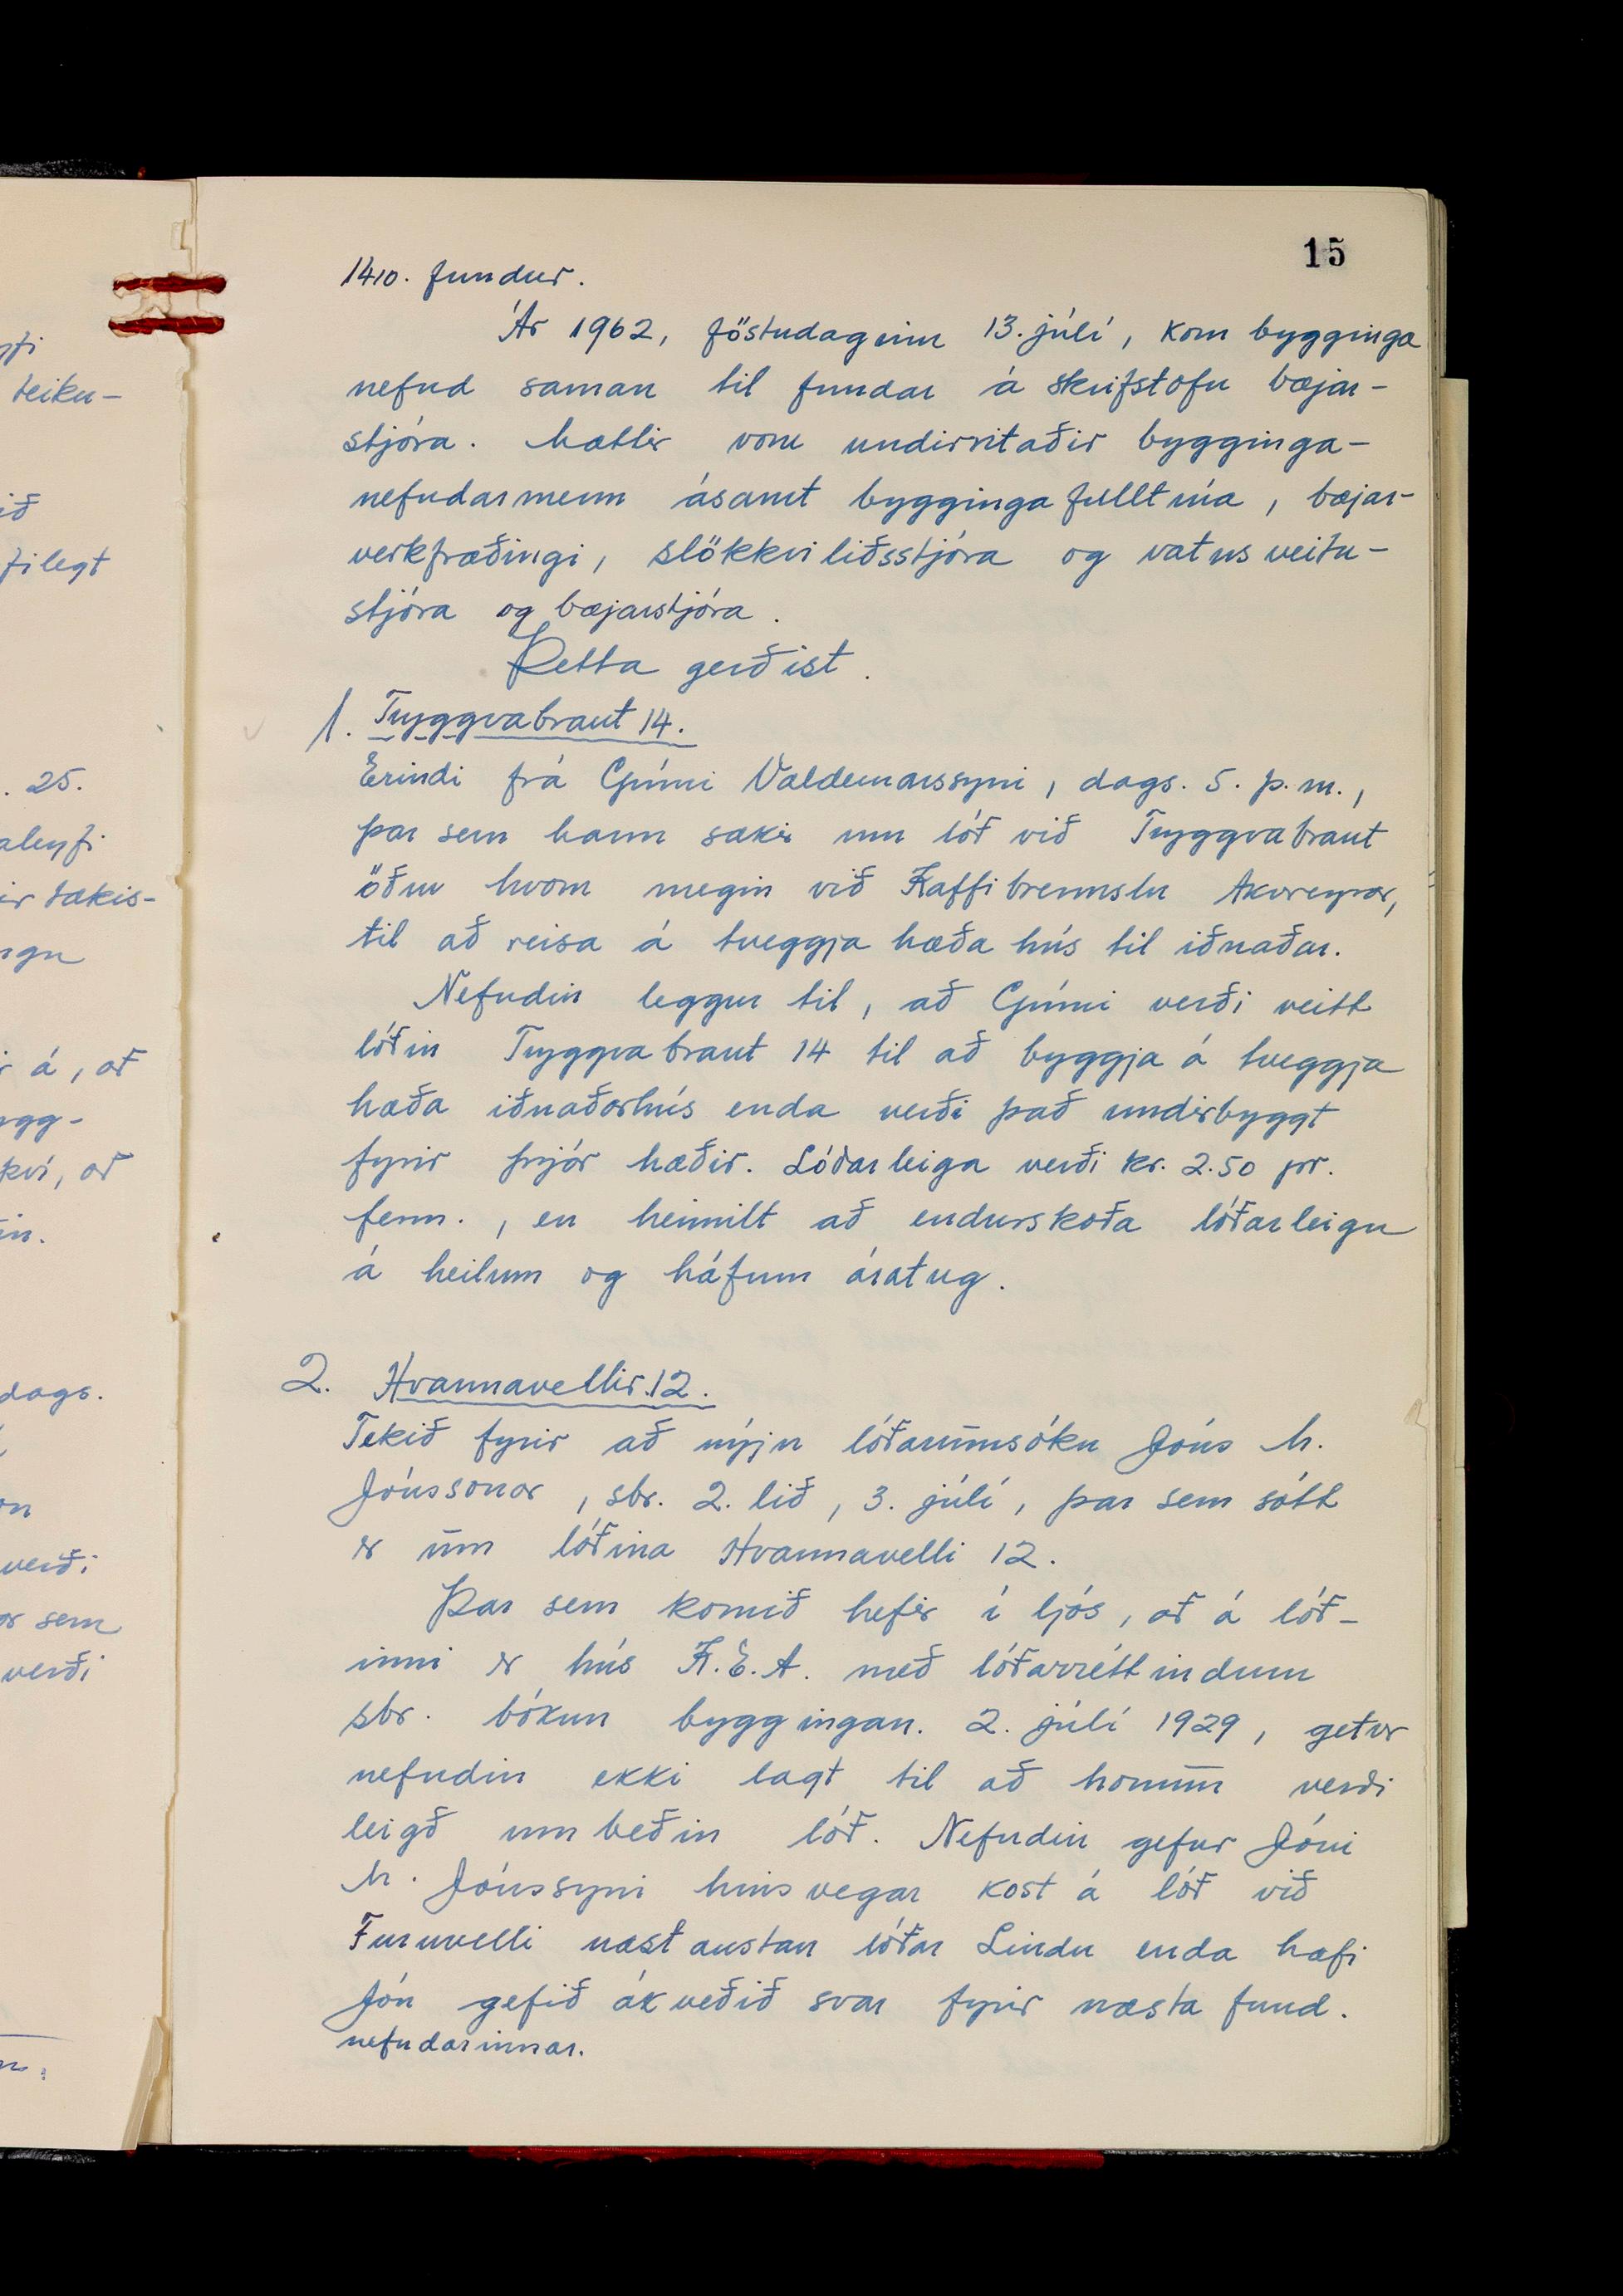 15
1410. fundur.
Ár 1962, föstudaginn 13. júlí, kom bygginga
nefnd saman til fundar á skrifstofu bæjar-
stjóra. Mættir voru undirritaðir bygginga-
nefndarmenn ásamt byggingafulltrúa, bæjar-
verkfræðingi, slökkviliðsstjóra og vatnsveitu-
stjóra og bæjarstjóra.
Þetta gerðist.
1. Tryggvabraut 14.
Erindi frá Guðmi Valdemarssyni, dags. 5. þ.m.,
þar sem hann sækir um lóð við Tryggvabraut
öðru hvoru megin við Kaffibrennslu Akureyrar,
til að reisa á tveggja hæða hús til iðnaðar.
Nefndin leggur til, að Guðmi verði veitt
lóðin Tryggvabraut 14 til að byggja á tveggja
hæða iðnaðarhús enda verði það undirbyggt
fyrir þrjár hæðir. Lóðarleiga verði kr. 2.50 pr.
ferm., en heimilt að endurskoða lóðarleigu
á heilum og háfum áratug.
2. Hvannavellir 12.
Tekið fyrir að nýju lóðarumsókn Jóns M.
Jónssonar, sbr. 2. lið, 3. júlí, þar sem sótt
er um lóðina Hvannavelli 12.
Þar sem komið hefir í ljós, að á lóð-
inni er hús K.E.A. með lóðarréttindum
sbr. bókun byggingan. 2. júlí 1929, getur
nefndin ekki lagt til að honum verði
leigð umbeðin lóð. Nefndin gefur Jóni
M. Jónssyni hinsvegar kost á lóð við
Furuvelli næst austan lóðar Lindu enda hafi
Jón gefið ákveðið svar fyrir næsta fund.
nefndarinnar.
yfi
teikn-
ið
filegt
. 25.
aleyfi
ir tækis-
ngu
r á, að
ygg-
kví, að
in.
dags.
on
verði
or sem
verði